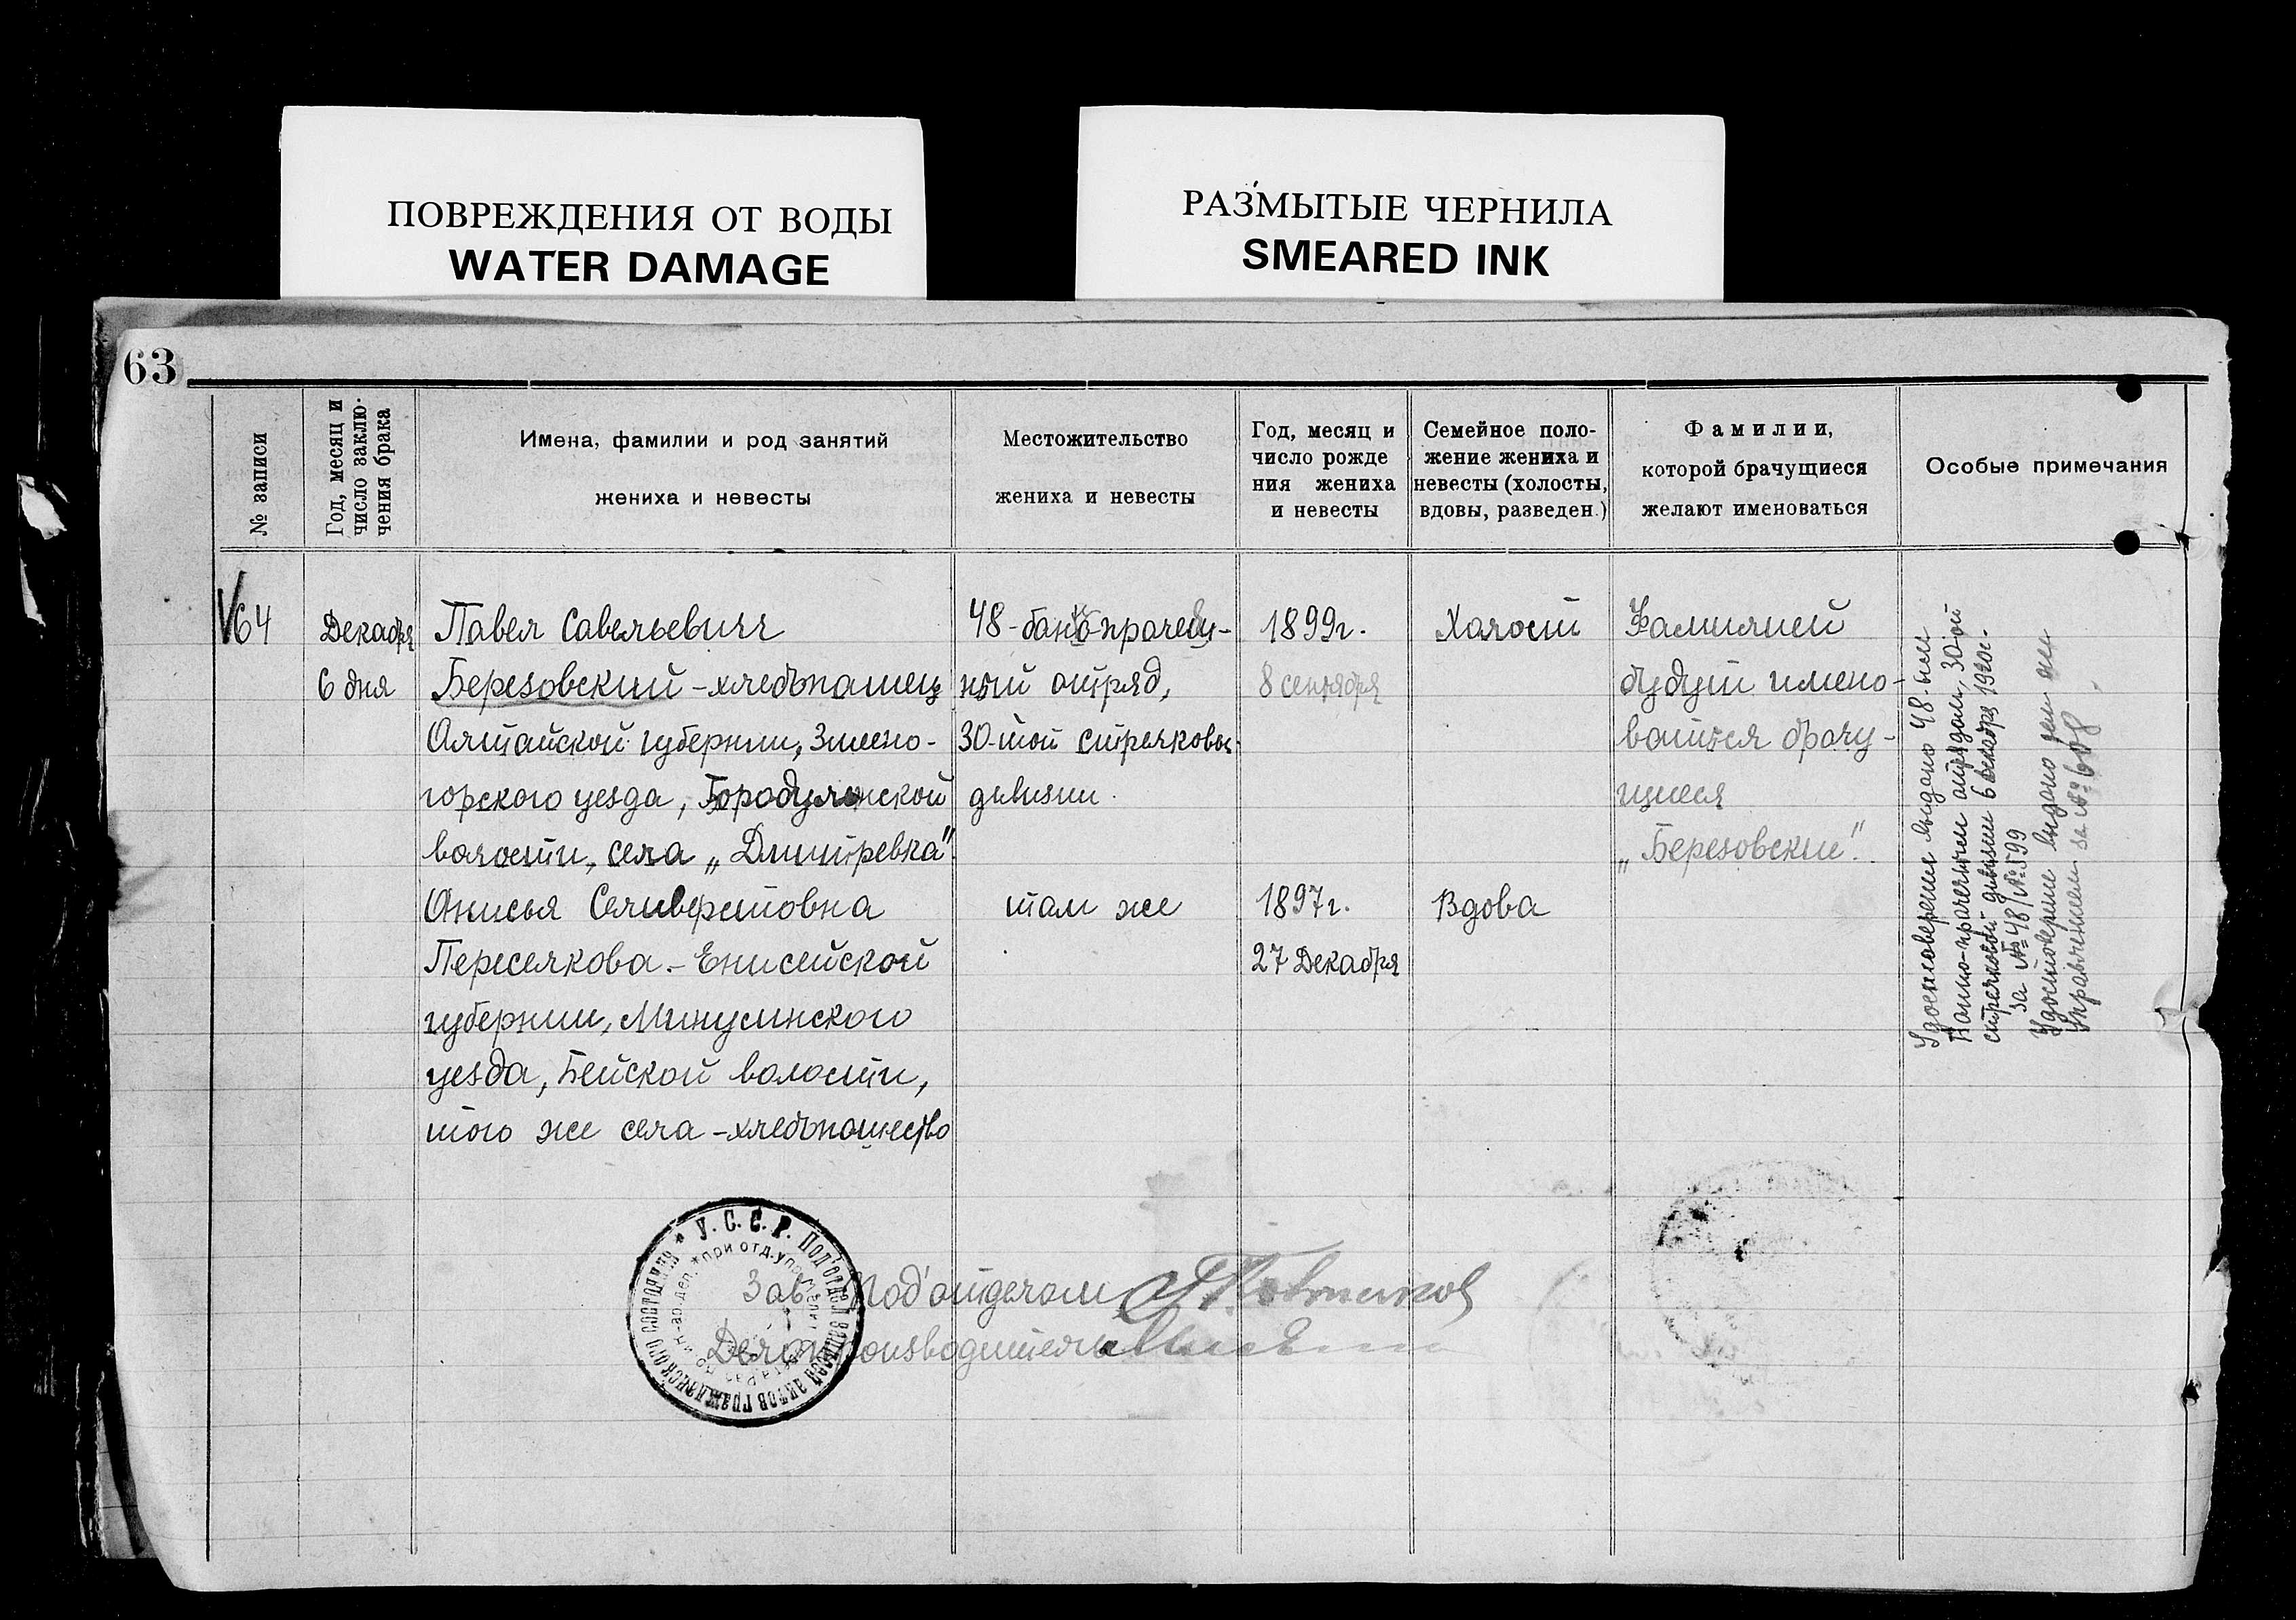 ПОВРЕЖДЕНИЯ ОТ ВОДЫ
WATER DAMAGE
РАЗМЫТЫЕ ЧЕРНИЛА
SMEARED INK
63
№ записи
Год, месяц и
число заклю-
чения брака
Имена, фамилии и род занятий
жениха и невесты
Местожительство
жениха и невесты
Год, месяц и
число рожде
ния жениха
и невесты
Семейное поло-
жение жениха и
невесты (холосты,
вдовы, разведен.)
Фамилии,
которой брачущиеся
желают именоваться
Особые примечания
64
Декабря
6 дня
Павел Савельевич
Березовский - хлебопашец
Алтайской губернии, Змеено-
горского уезда,
волости, села „Дмитревка"
Анисья Селиверстовна
Переселкова. - Енисейской
губернии, Минусинского
уезда, Бейской волости,
того же села - хлебопашество
48 - банно-прачеш-
ный отряд,
30-той стрелковой
дивизии.
там же
1899г.
8 сентября
1897г.
27 Декабря
Холост
Вдова
Фамилией
будут имено-
ваться брачу-
щиеся
„Березовские".
Удостоверения выдано 48-ным
Банно-прачечным отрядом, 30-ой
стрелковой дивизии 6 декабря 1920г.
за № 48/№ 599
Удостоверение выдано тем же
Управлением за № 608
У.С.С.Р. Под'отдел записей актов гражданского состояния
при отд. упр.
Зав. Под'отделом
Делопроизводитель